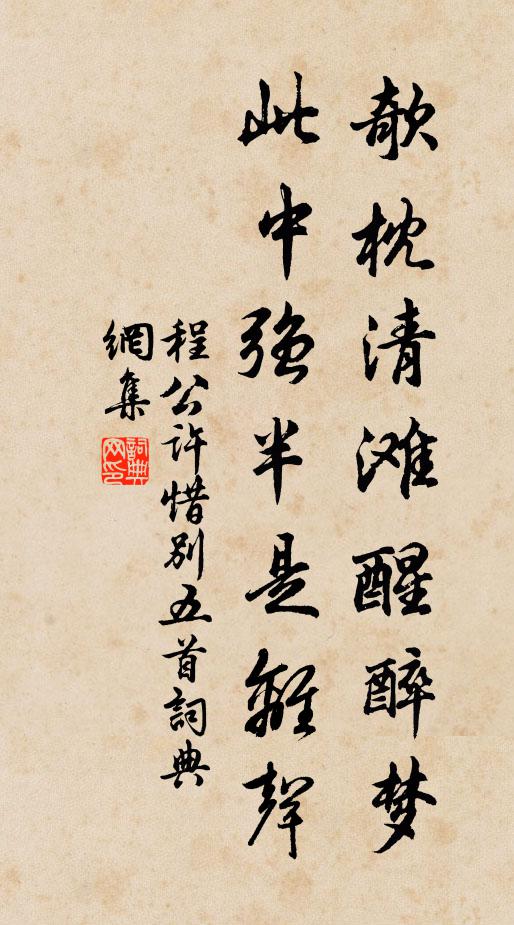 欹枕清滩醒醉梦
此中強半是離聲
程公许惜别五首詞典
網集
詞典
网印